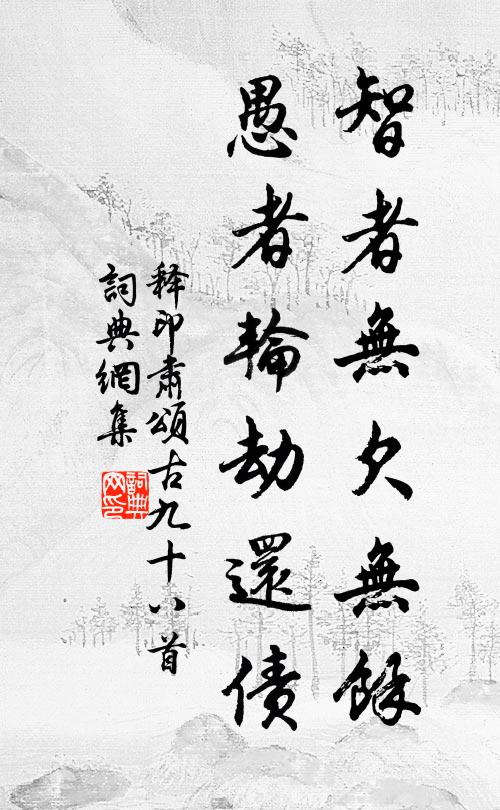 智者無欠無餘
愚者輪劫還債
释印肅頌古九十八首
詞典網集
詞典网印